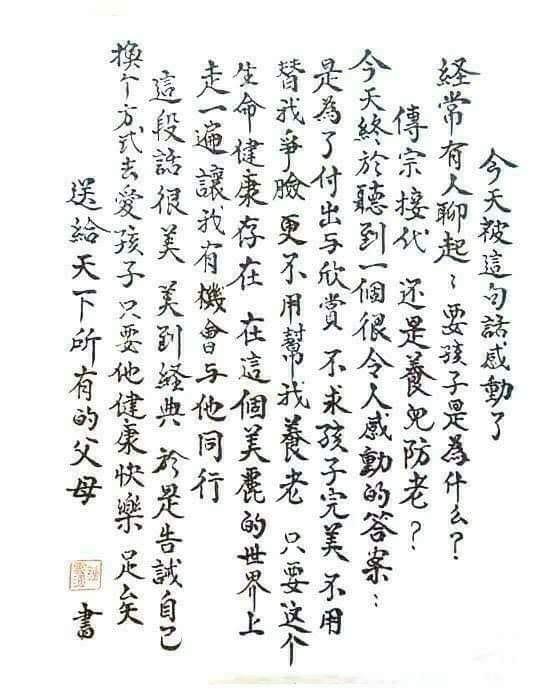 今天被這句話感動了
経常有人聊起：要孩子是為什么？
傳宗接代 还是養兒防老？
今天終於聽到一個很令人感動的答案：
是為了付出与欣賞 不求孩子完美 不用
替我爭臉 更不用幫我養老 只要这个
生命健康存在 在這個美麗的世界上
走一遍讓我有機會与他同行
這段話很美 美到経典 於是告誡自己
換个方式去愛孩子只要他健康快樂 足矣
送給天下所有的父母
書